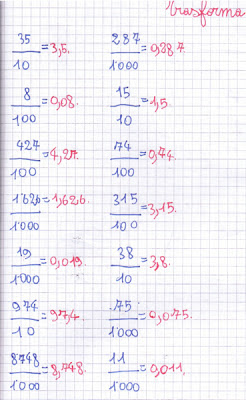 Trasforma
35/10 = 3,5. 287/1'000 = 0,287
8/100 = 0,08. 15/10 = 1,5.
427/100 = 4,27. 74/100 = 0,74.
1'626/1'000 = 1,626. 315/100 = 3,15.
19/1'000 = 0,019. 38/10 = 3,8.
974/10 = 97,4. 75/1'000 = 0,075.
8748/1'000 = 8,748. 11/1'000 = 0,011.